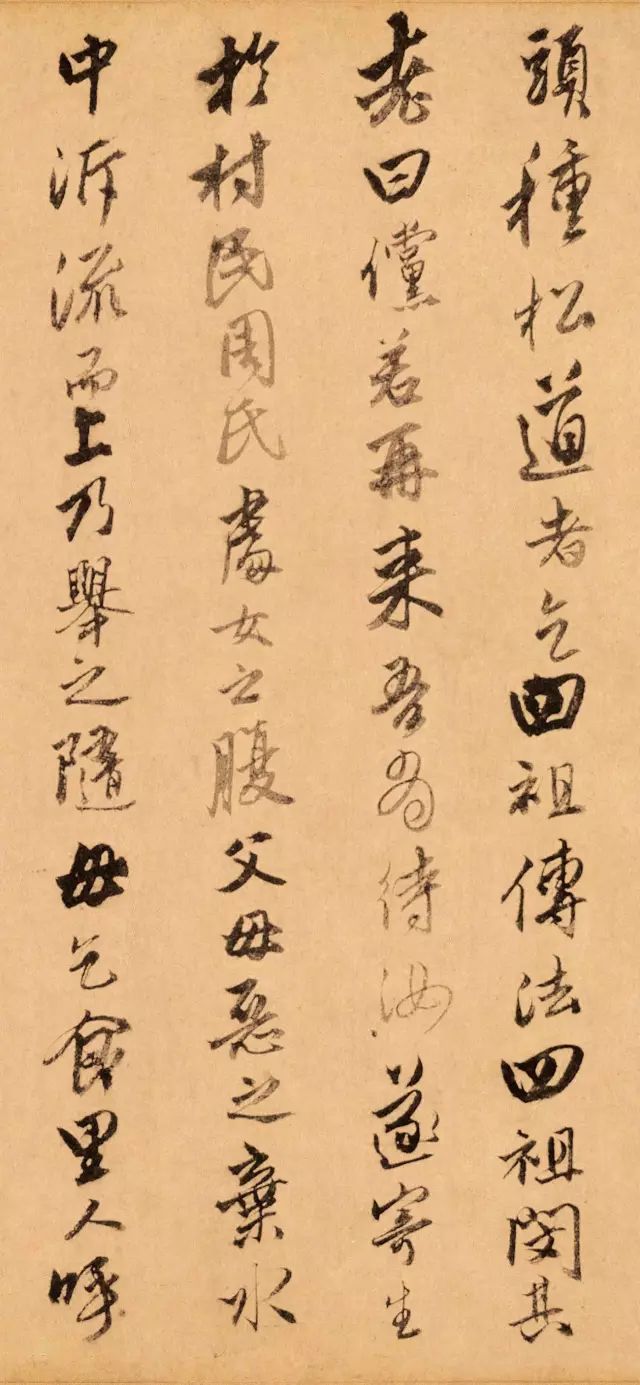 頭種松道者乞四祖傳法四祖閔其
老曰儻若再来吾尚待汝遂寄生
於村民周氏處女之腹父母惡之棄水
中泝流而上乃舉之隨母乞食里人呼